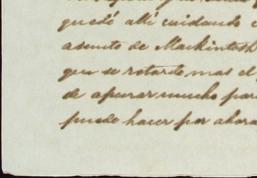 quedó allí cuidando
asunto de Mackintosh
que se retarde mas el
de apurar mucho para
puede hacer por ahora